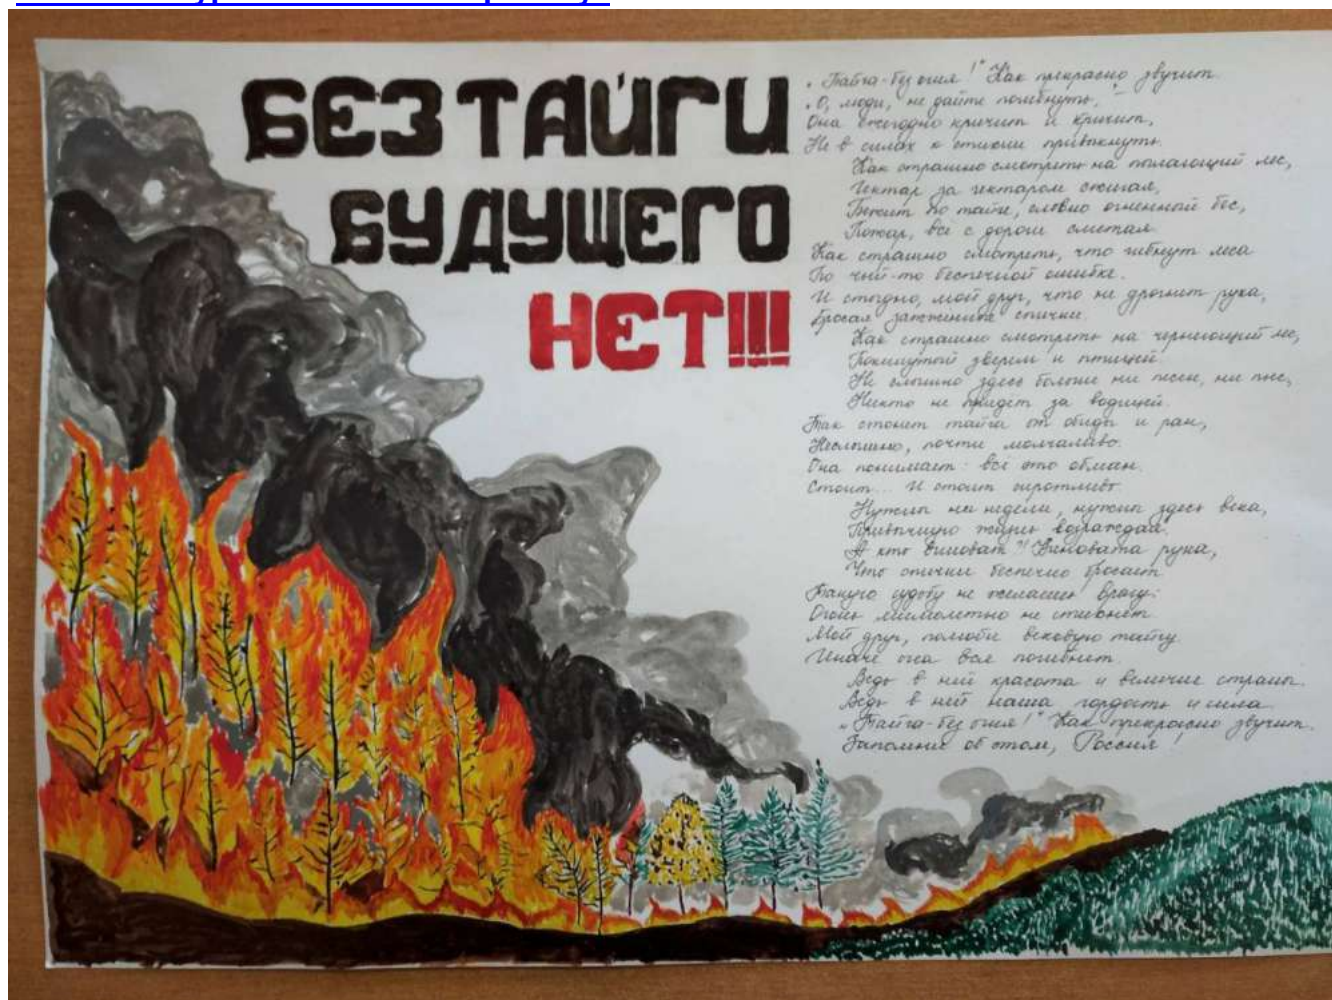 БЕЗ ТАЙГИ
БУДУЩЕГО
НЕТ!!!
"Тайга-без огня!" Как прекрасно звучит.
"О, люди, не дайте погибнуть,"-
Она ежегодно кричит и кричит,
Не в силах к стихии привыкнуть.
Как страшно смотреть на пылающий лес,
Гектар за гектаром сжигая,
Бежит по тайге, словно огненный бес,
Пожар, всё с дороги сметая.
Как страшно смотреть, что гибнут леса
По чьей-то беспечной ошибке.
И стыдно, мой друг, что не дрогнет рука,
Бросая зажженные спички.
Как страшно смотреть на чернеющий лес,
Покинутый зверем и птицей.
Не слышно здесь больше ни песен, ни пьес,
Никто не придет за водицей.
Так стонет тайга от обиды и ран,
Неслышно, почти молчаливо.
Она понимает: всё это обман.
Стоит... И стоит сиротливо.
Нужны не недели, нужны здесь века,
Привычную жизнь возрождая.
А кто виноват?! Виновата рука,
Что спички беспечно бросает.
Такую судьбу не желаешь врагу:
Огонь мимолетно не стихнет.
Мой друг, полюби вековую тайгу.
Иначе она вся погибнет.
Ведь в ней красота и величие страны.
Ведь в ней наша гордость и сила.
"Тайга-без огня!" Как прекрасно звучит.
Запомним об этом, Россия!